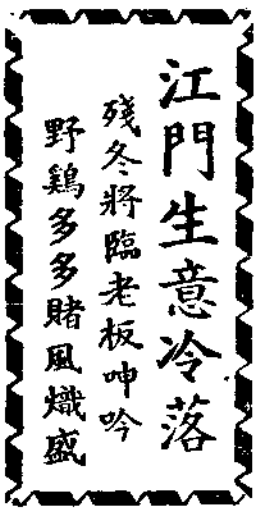 江門生意冷落
殘冬將臨老板呻吟
野鷄多多賭風熾盛